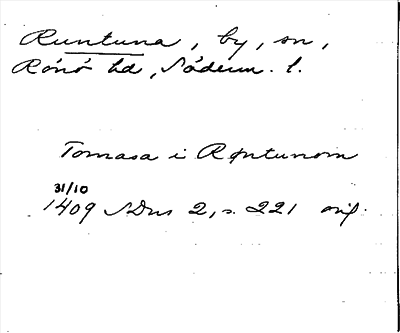 Runtuna, by, sn,
Rönö hd, Söderm. l.
Tomasa i Røntunom
31/10
1409 SDns 2, s. 221 orig.